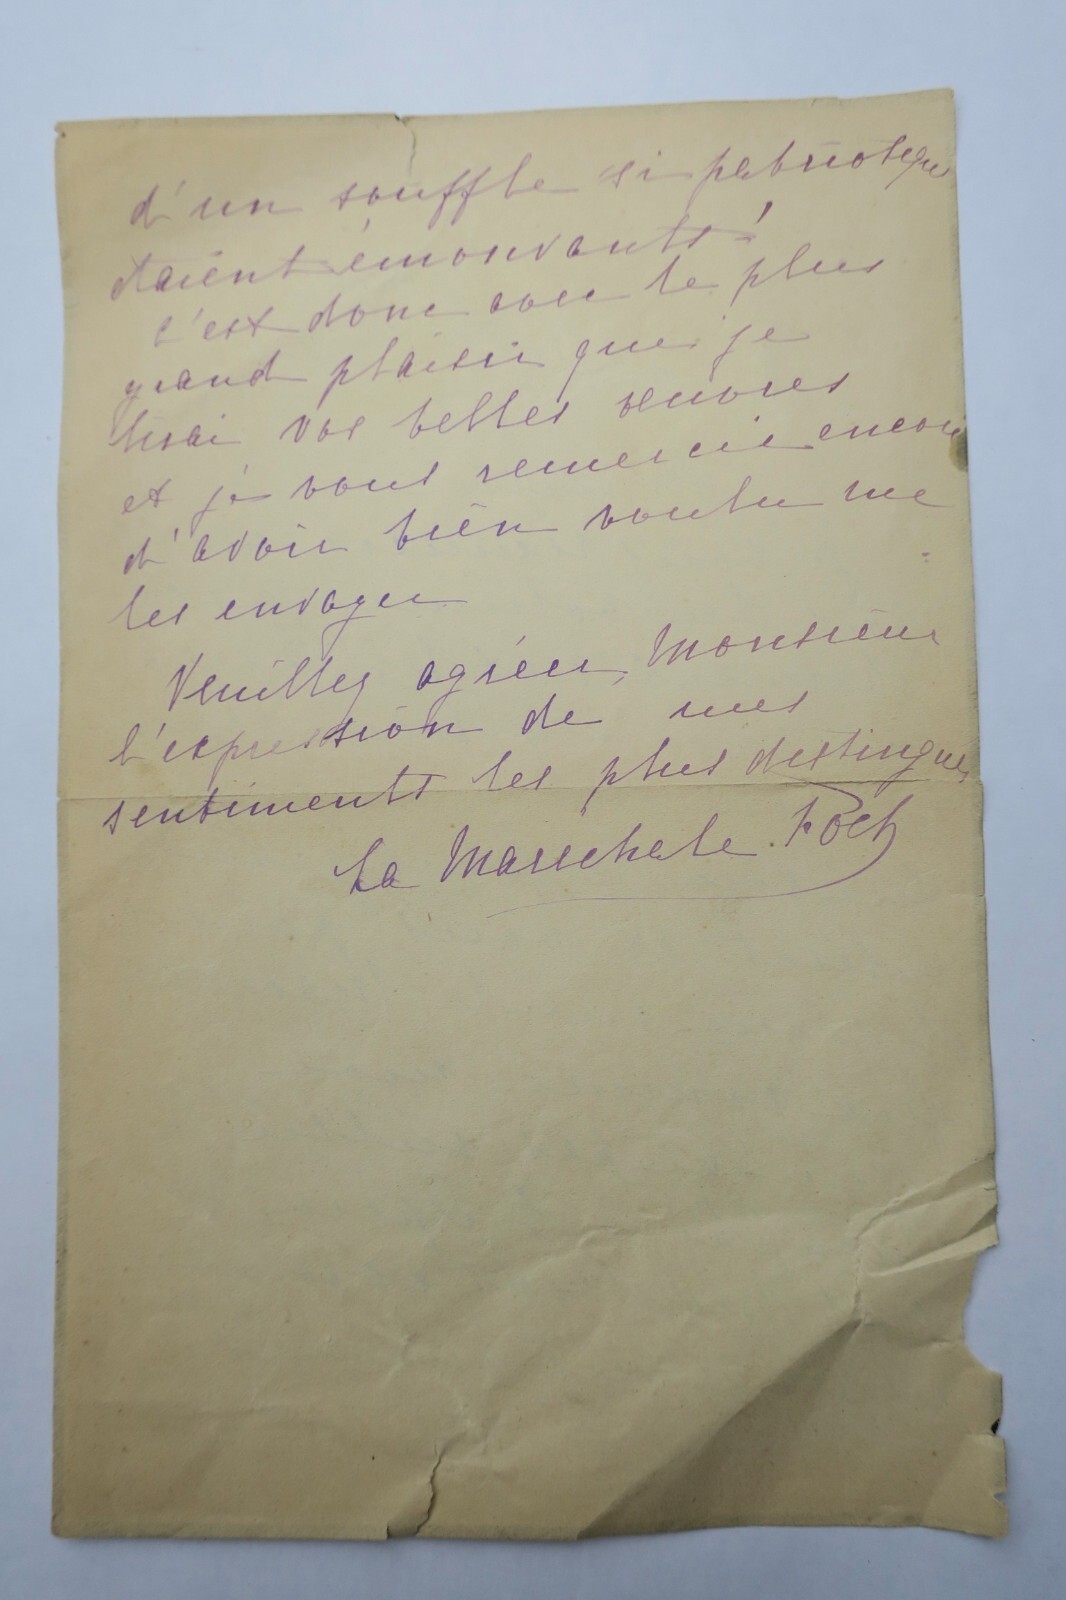 d'un souffle si patriotique
étaient émouvants !
C'est donc avec le plus
grand plaisir que je
lirai vos belles œuvres
et je vous remercie encore
d'avoir bien voulu me
les envoyer
Veuillez agréer, Monsieur
l'expression de mes
sentiments les plus distingués
La Marechale Foch